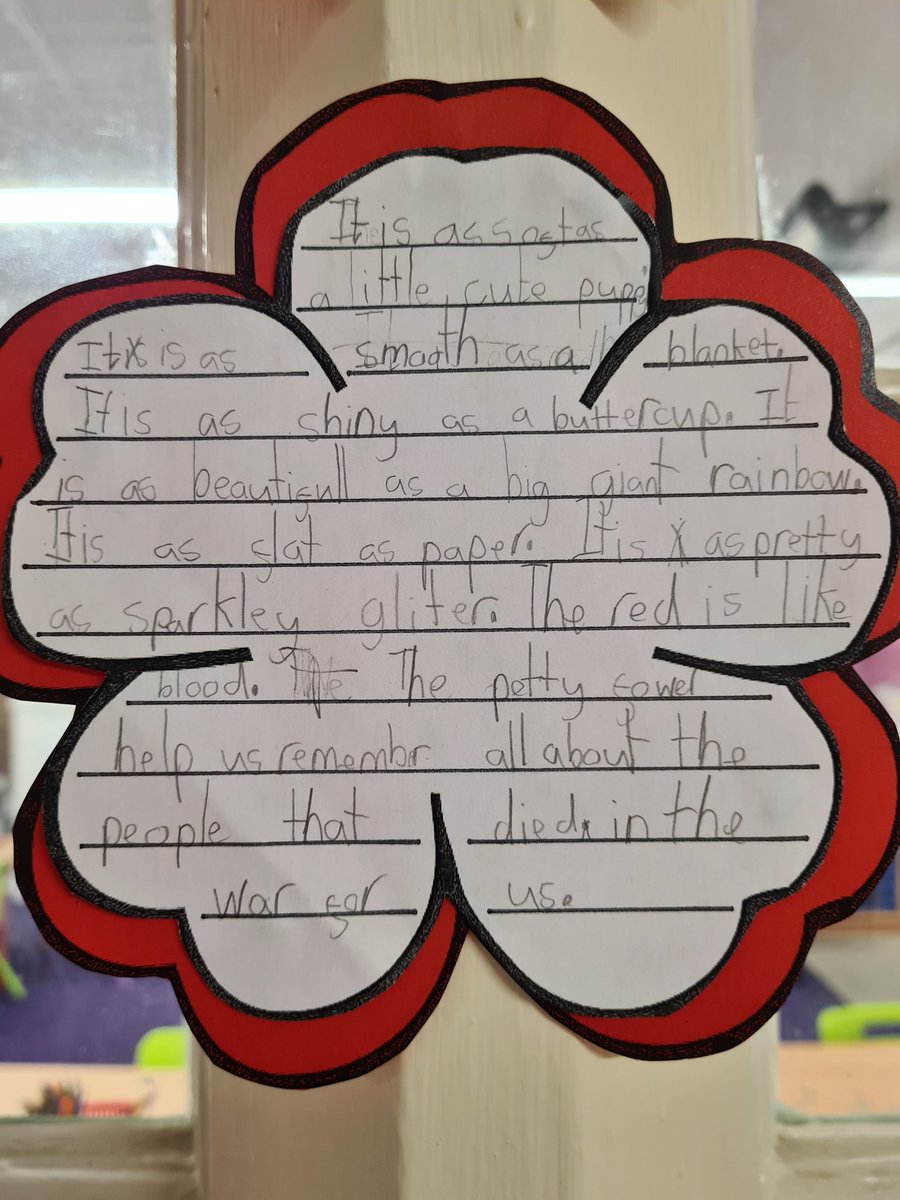 It is as soft as
a little cute puppe
It is as smooth as a blanket.
It is as shiny as a buttercup. It
is as beautifull as a big giant rainbow.
It is as flat as paper. It is as pretty
as sparkley gliter. The red is like
blood. The petty fower
help us remembr all about the
people that died in the
war for us.